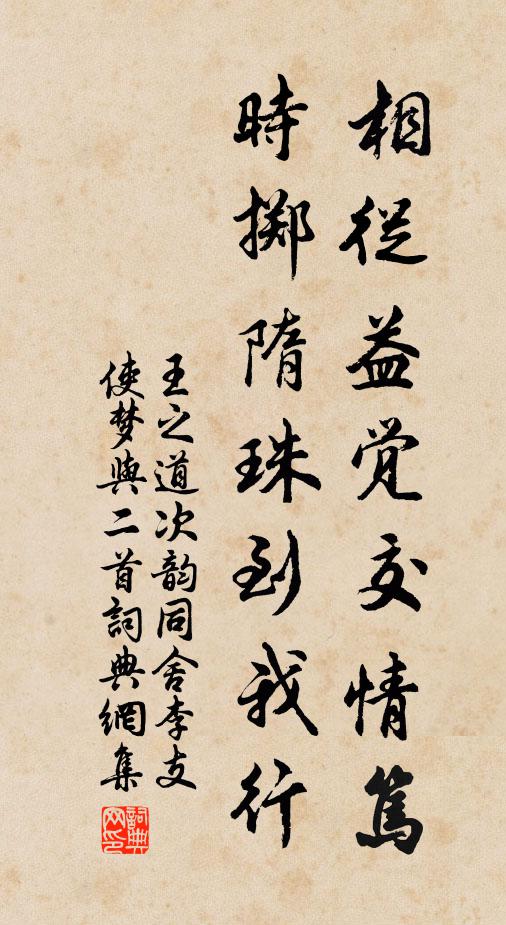 相從益觉交情篤
時掷隋珠到我行
王之道次韵同舍李支
使梦與二首詞典網集
詞典网印